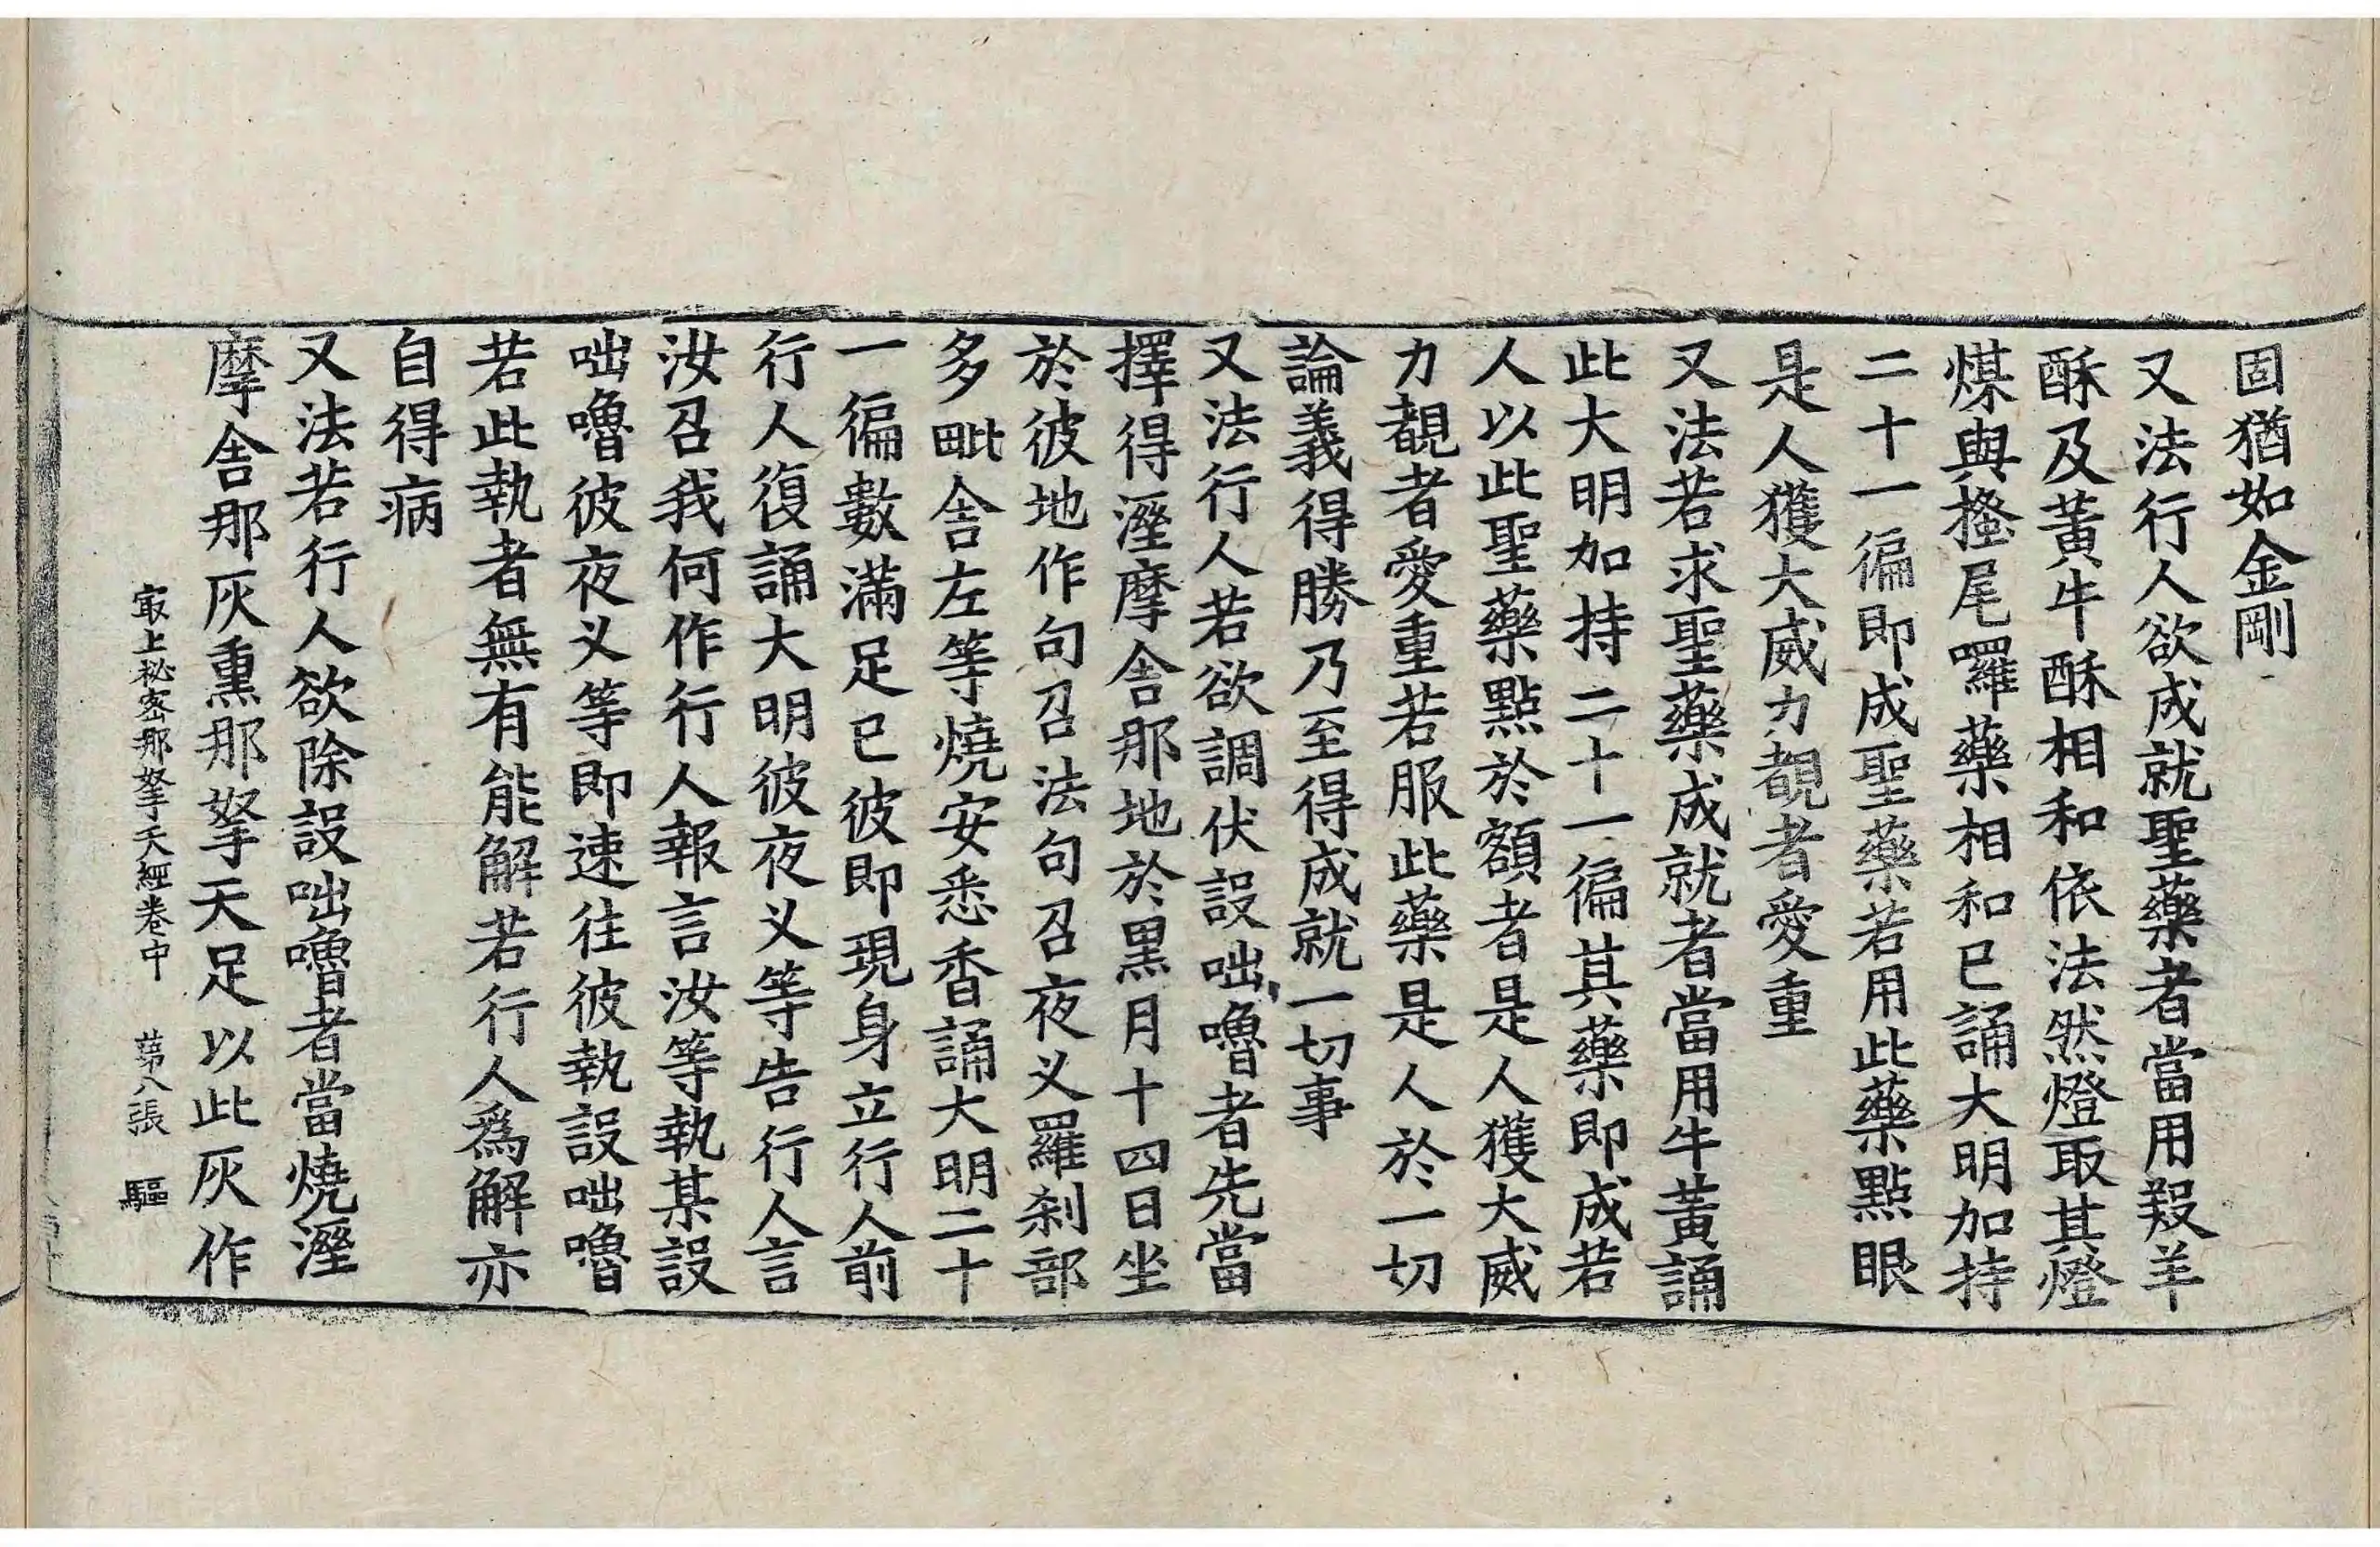 固猶如金剛
又法行人欲成就聖藥者當用羖羊
酥及黃牛酥相和依法然燈取其燈
煤與搔尾囉藥相和已誦大明加持
二十一徧即成聖藥若用此藥點眼
是人獲大威力覩者愛重
又法若求聖藥成就者當用牛黃誦
此大明加持二十一徧其藥即成若
人以此聖藥點於額者是人獲大威
力覩者愛重若服此藥是人於一切
論義得勝乃至得成就一切事
又法行人若欲調伏設咄嚕者先當
擇得溼摩舍那地於黑月十四日坐
於彼地作句召法句召夜叉羅刹部
多毗舍左等燒安悉香誦大明二十
一徧數滿足已彼即現身立行人前
行人復誦大明彼夜叉等告行人言
汝召我何作行人報言汝等執某設
咄嚕彼夜叉等即速往彼執設咄嚕
若此執者無有能解若行人爲解亦
自得病
又法若行人欲除設咄嚕者當燒溼
摩舍那灰熏那拏天足以此灰作
最上祕密那拏天經卷中 第八張 驅